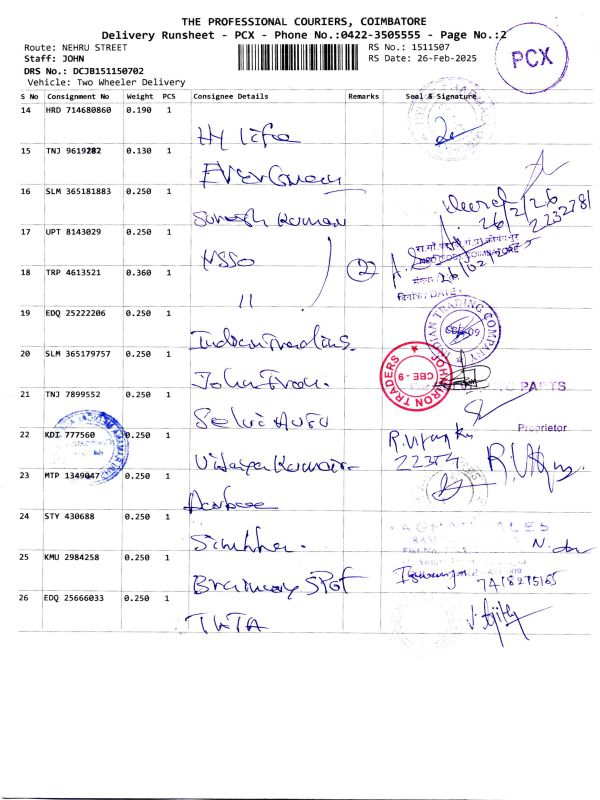 THE PROFESSIONAL COURIERS, COIMBATORE
Delivery Runsheet - PCX - Phone No.:0422-3505555 - Page No.:2
Route: NEHRU STREET RS No.: 1511507
Staff: JOHN RS Date: 26-Feb-2025
DRS No.: DCJB151150702
Vehicle: Two Wheeler Delivery
PCX
S No Consignment No Weight PCS Consignee Details Remarks Seal & Signature
14 HRD 714680860 0.190 1
Hy life
15 TNJ 9619282 0.130 1
EverGreen
16 SLM 365181883 0.250 1
Suresh Kumar
26/2/26
2232781
17 UPT 8143029 0.250 1
NSSO
18 TRP 4613521 0.360 1
11
2
26/02/2025
दिनांक/DATE:
19 EDQ 25222206 0.250 1
Indian Tradings.
INDIAN TRADING COMPANY
20 SLM 365179757 0.250 1
John Iron.
JOHN IRON TRADERS
CBE - 9
PARTS
21 TNJ 7899552 0.250 1
Selvi Auto
Proprietor
22 KDI 777560 0.250 1
Vijaya Kumar
22354
23 MTP 1349047 0.250 1
24 STY 430688 0.250 1
25 KMU 2984258 0.250 1
Spot
7418275165
26 EDQ 25666033 0.250 1
TATA